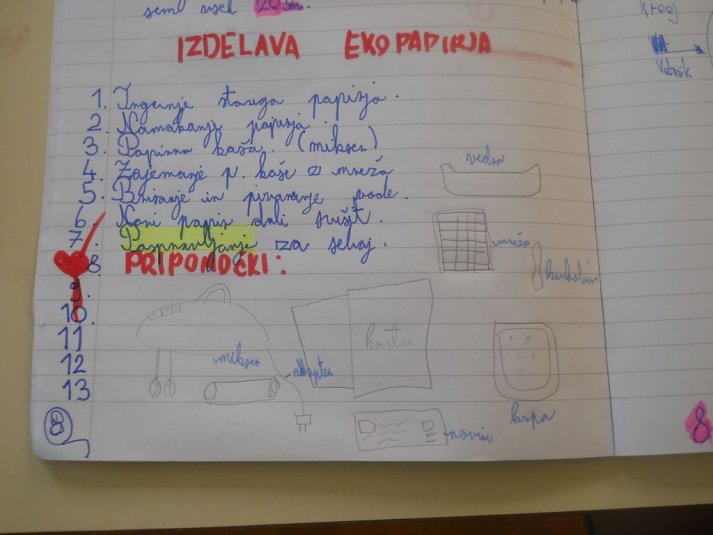 seml vijek 120 sm.
IZDELAVA EKOPAPIRJA
1. Trganje starega papirja.
2. Namakanje papirja.
3. Papirna kaša. (mikser)
4. Zajemanje p. kaše z mrežo
5. Brisanje in pivnanje vode.
6. Novi papir dali sušit.
7. Pospravljanje za sebaj.
8. PRIPOMOČKI:
9.
10.
11
12
13
vedro
mreža
kuhalnica
mikser
karton
krpa
novine
8
krog
Vodnik
8